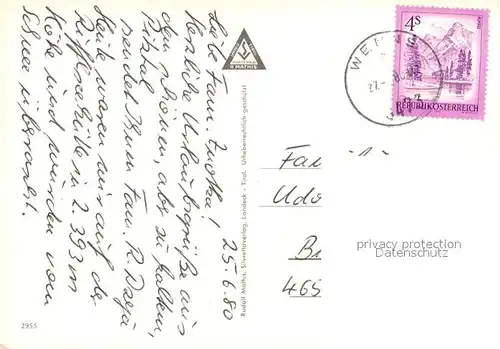 25-6.80
Liebe Fam.
Herzliche Urlaubsgrüße aus
dem schönen, aber zu kalten,
Pitztal
sendet Ihnen Fam. R.
Heute waren wir auf der
Rifflseehütte in 2.293 m
Höhe und wurden vom
Schnee überrascht.
2955
R. MATHIS
Rudolf Mathis, Silvrettaverlag, Landeck - Tirol. Urheberrechtlich geschützt
WEN
4S
REPUBLIK ÖSTERREICH
Fa
Udo
B
465
privacy protection
Datenschutz